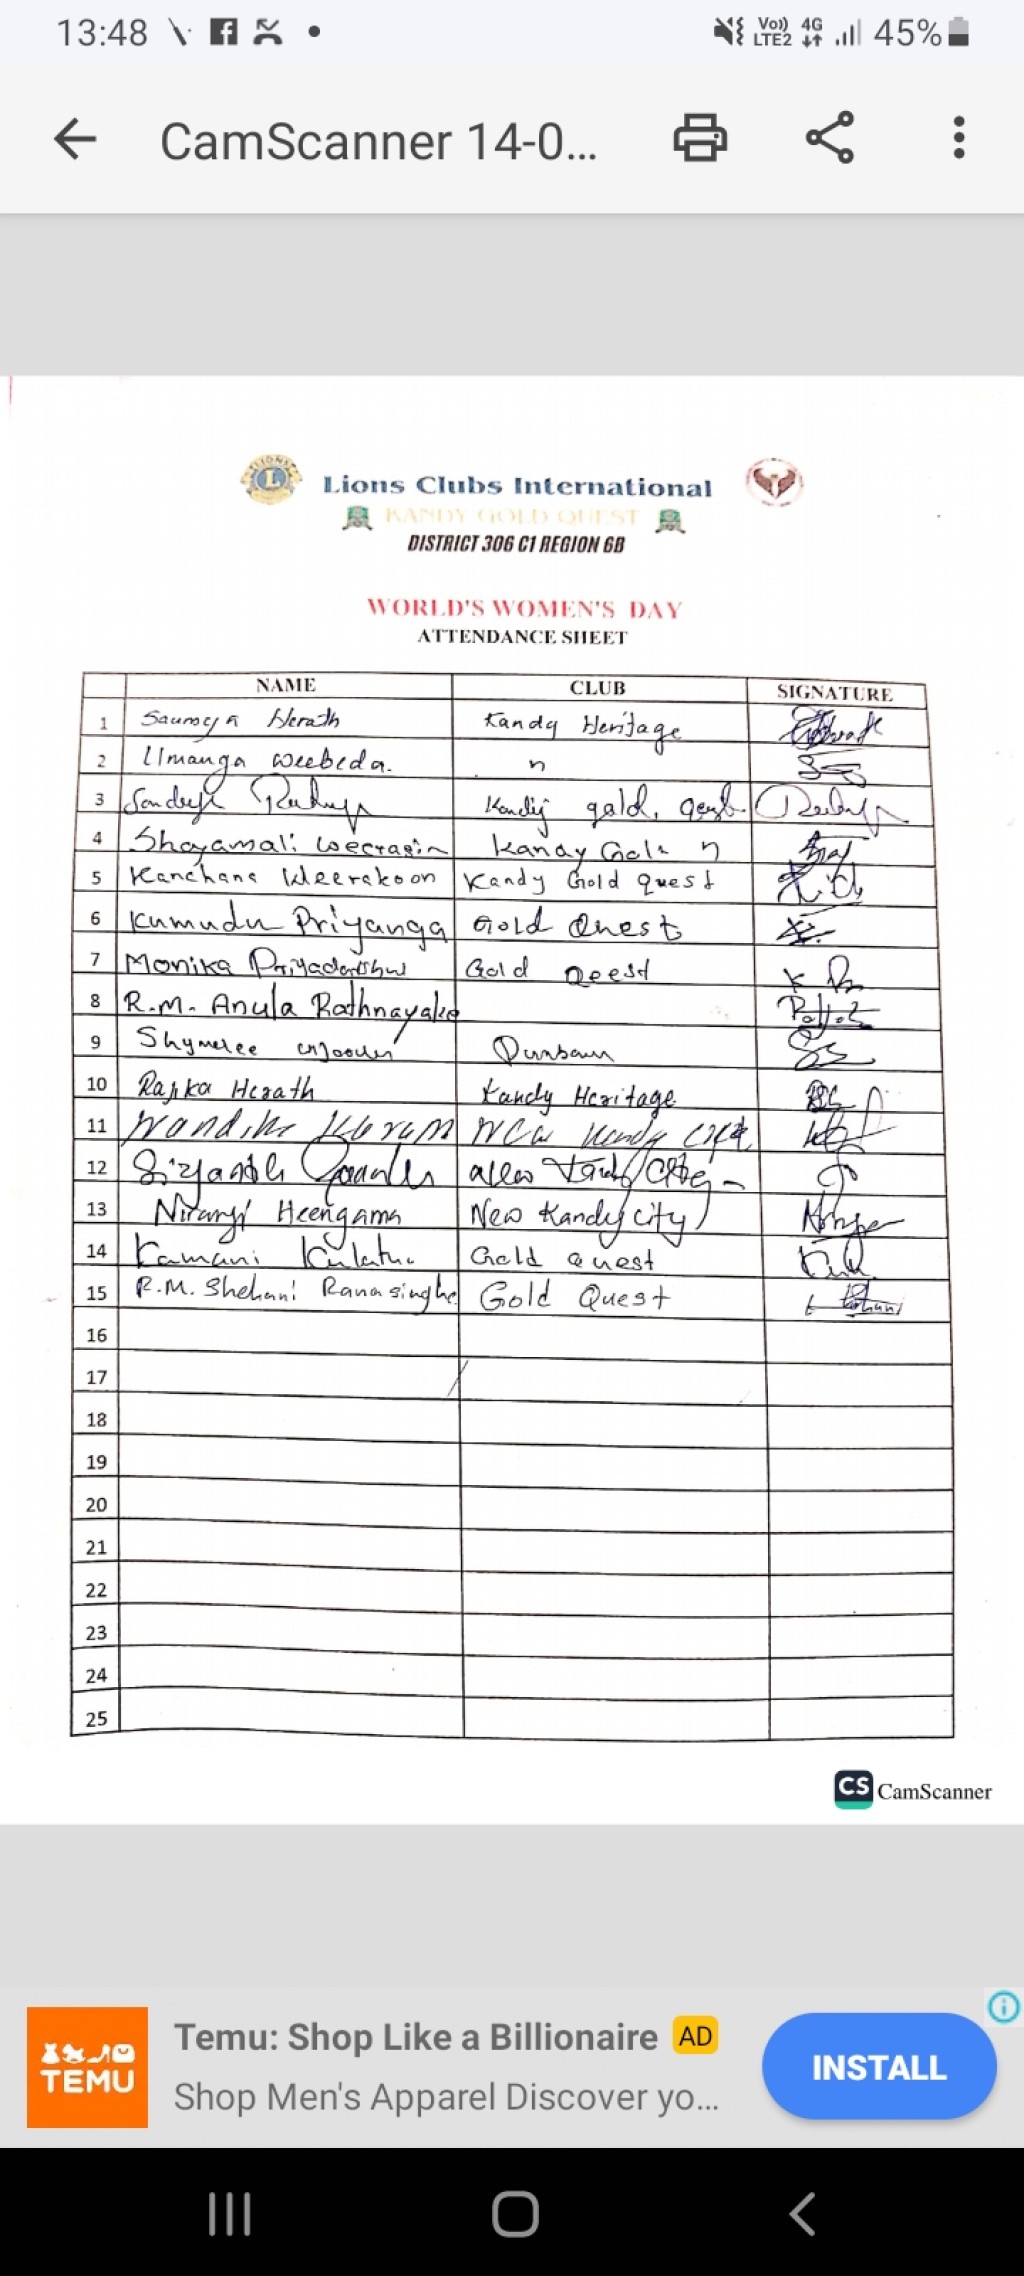 13:48 Vo)) LTE2 4G 45%
CamScanner 14-0...
LIONS L
Lions Clubs International
KANDY GOLD QUEST
DISTRICT 306 C1 REGION 6B
WORLD'S WOMEN'S DAY
ATTENDANCE SHEET
NAME CLUB SIGNATURE
1 Saumya Herath Kandy Heritage
2 Umanga Weebeda. "
3 Kandy gold,
4 Shayamali Kanay Gold "
5 Kanchana Weerakoon Kandy Gold quest
6 Kumudu Priyanga Gold Quest
7 Monika Gold Qeest
8 R.M. Anula Rathnayake
9
10 Rajika Herath Kandy Heritage
11 New Kandy City
12 New Kandy City
13 Niranji Heengama New Kandy city
14 Kamani Gold Quest
15 R.M. Shehani Ranasinghe Gold Quest
16
17
18
19
20
21
22
23
24
25
CS CamScanner
Temu: Shop Like a Billionaire AD
TEMU
Shop Men's Apparel Discover yo...
INSTALL